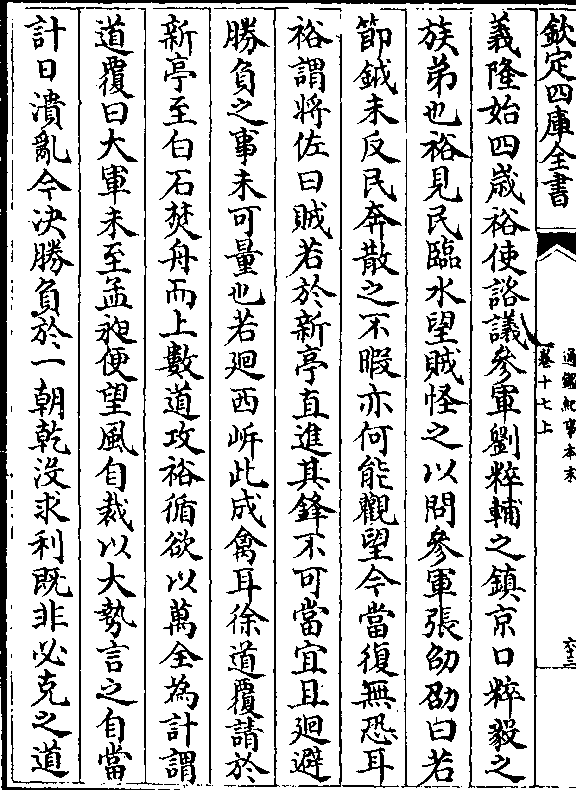 欽定四庫全書
通鑑紀事本末
卷十七上
六十三
義隆始四歳裕使諮議參軍劉粹輔之鎮京口粹毅之
族弟也裕見民臨水望賊怪之以問參軍張劭劭曰若
節鉞未反民奔散之不暇亦何能觀望今當復無恐耳
裕謂将佐曰賊若於新亭直進其鋒不可當宜且廻避
勝負之事未可量也若廻西㟁此成禽耳徐道覆請於
新亭至白石焚舟而上數道攻裕循欲以萬全為計謂
道覆曰大軍未至孟昶便望風自裁以大勢言之自當
計日潰亂今决勝負於一朝乾没求利既非必克之道